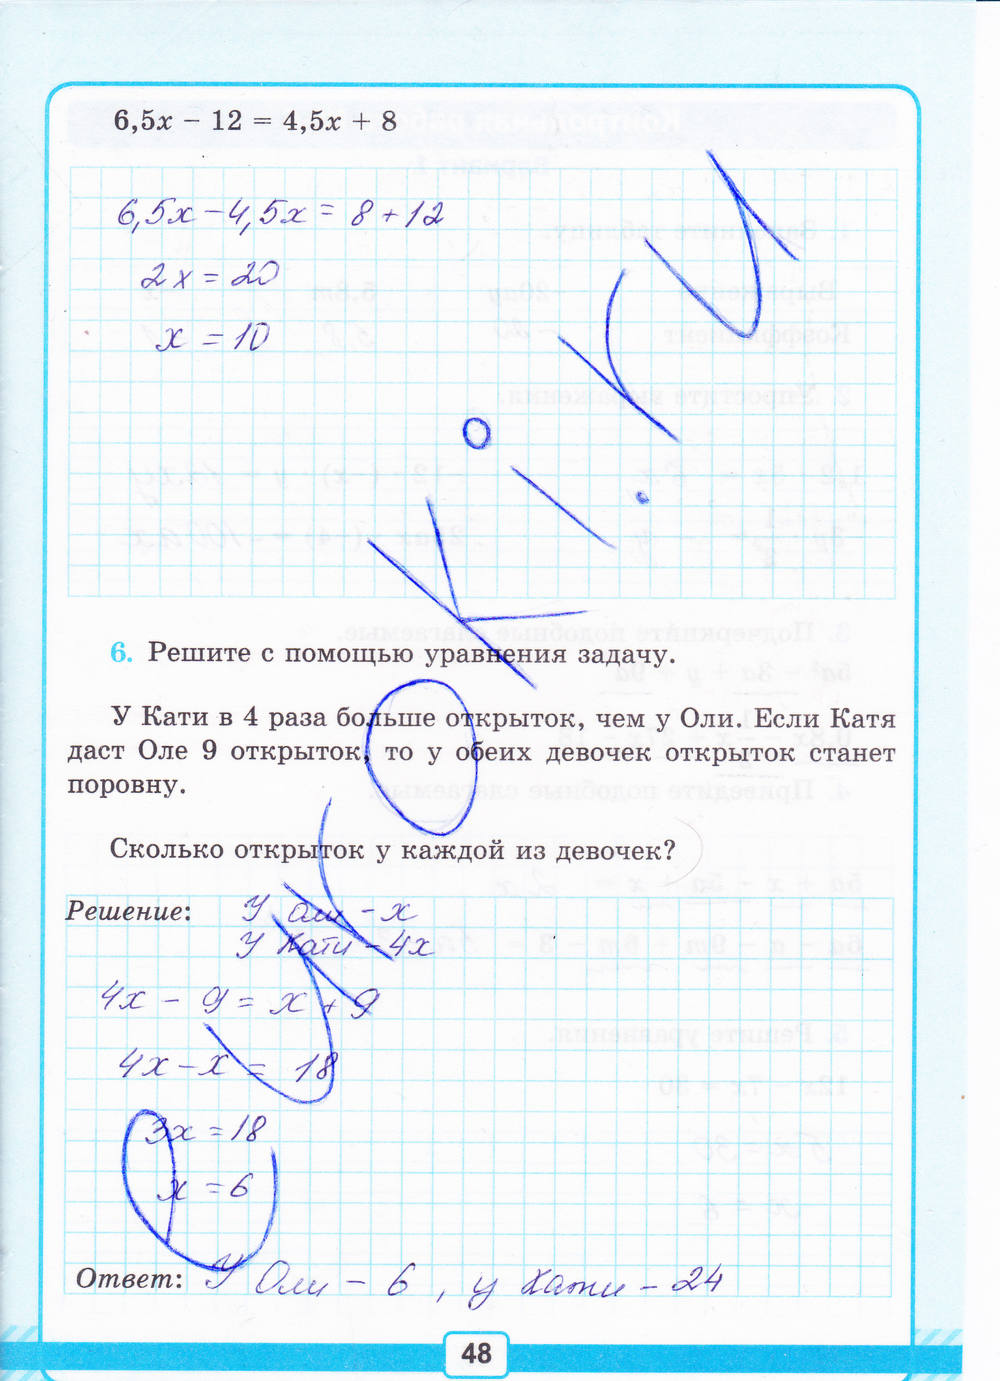 6,5x − 12 = 4,5x + 8
6,5x − 4,5x = 8 + 12
2x = 20
x = 10
6. Решите с помощью уравнения задачу.
У Кати в 4 раза больше открыток, чем у Оли. Если Катя
даст Оле 9 открыток, то у обеих девочек открыток станет
поровну.
Сколько открыток у каждой из девочек?
Решение: У Оли − x
У Кати − 4x
4x − 9 = x + 9
4x − x = 18
3x = 18
x = 6
Ответ: У Оли − 6, у Кати − 24
48